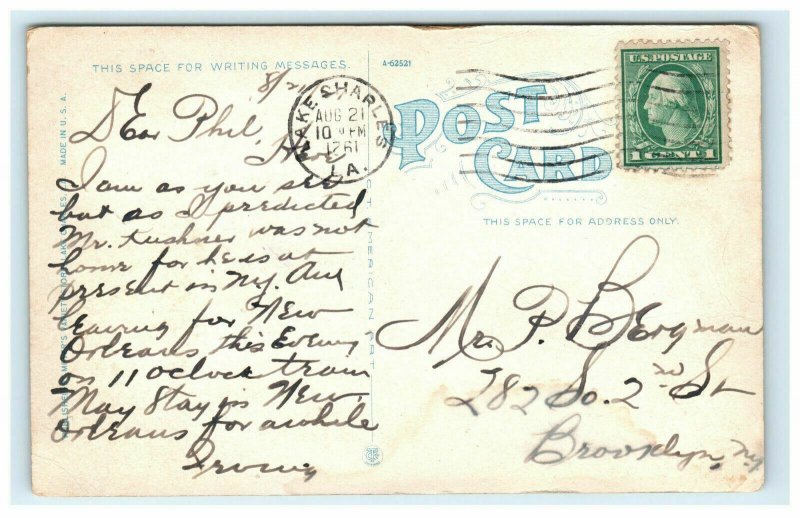 THIS SPACE FOR WRITING MESSAGES.
A-62521
8/21
Dear Phil,
Here
I am as you see
but as I predicted
Mr. Kushner was not
home for he is at
present in N.Y. Am
leaving for New
Orleans this Evening
on 11 oclock train
May Stay in New
Orleans for awhile
Irving
MADE IN U.S.A.
LAKE CHARLES
AUG 21
10
LA.
POST
CARD
U.S. POSTAGE
1 CENT 1
THIS SPACE FOR ADDRESS ONLY.
Mr. P. Bergman
282 So. 2nd St
Brooklyn, Ny